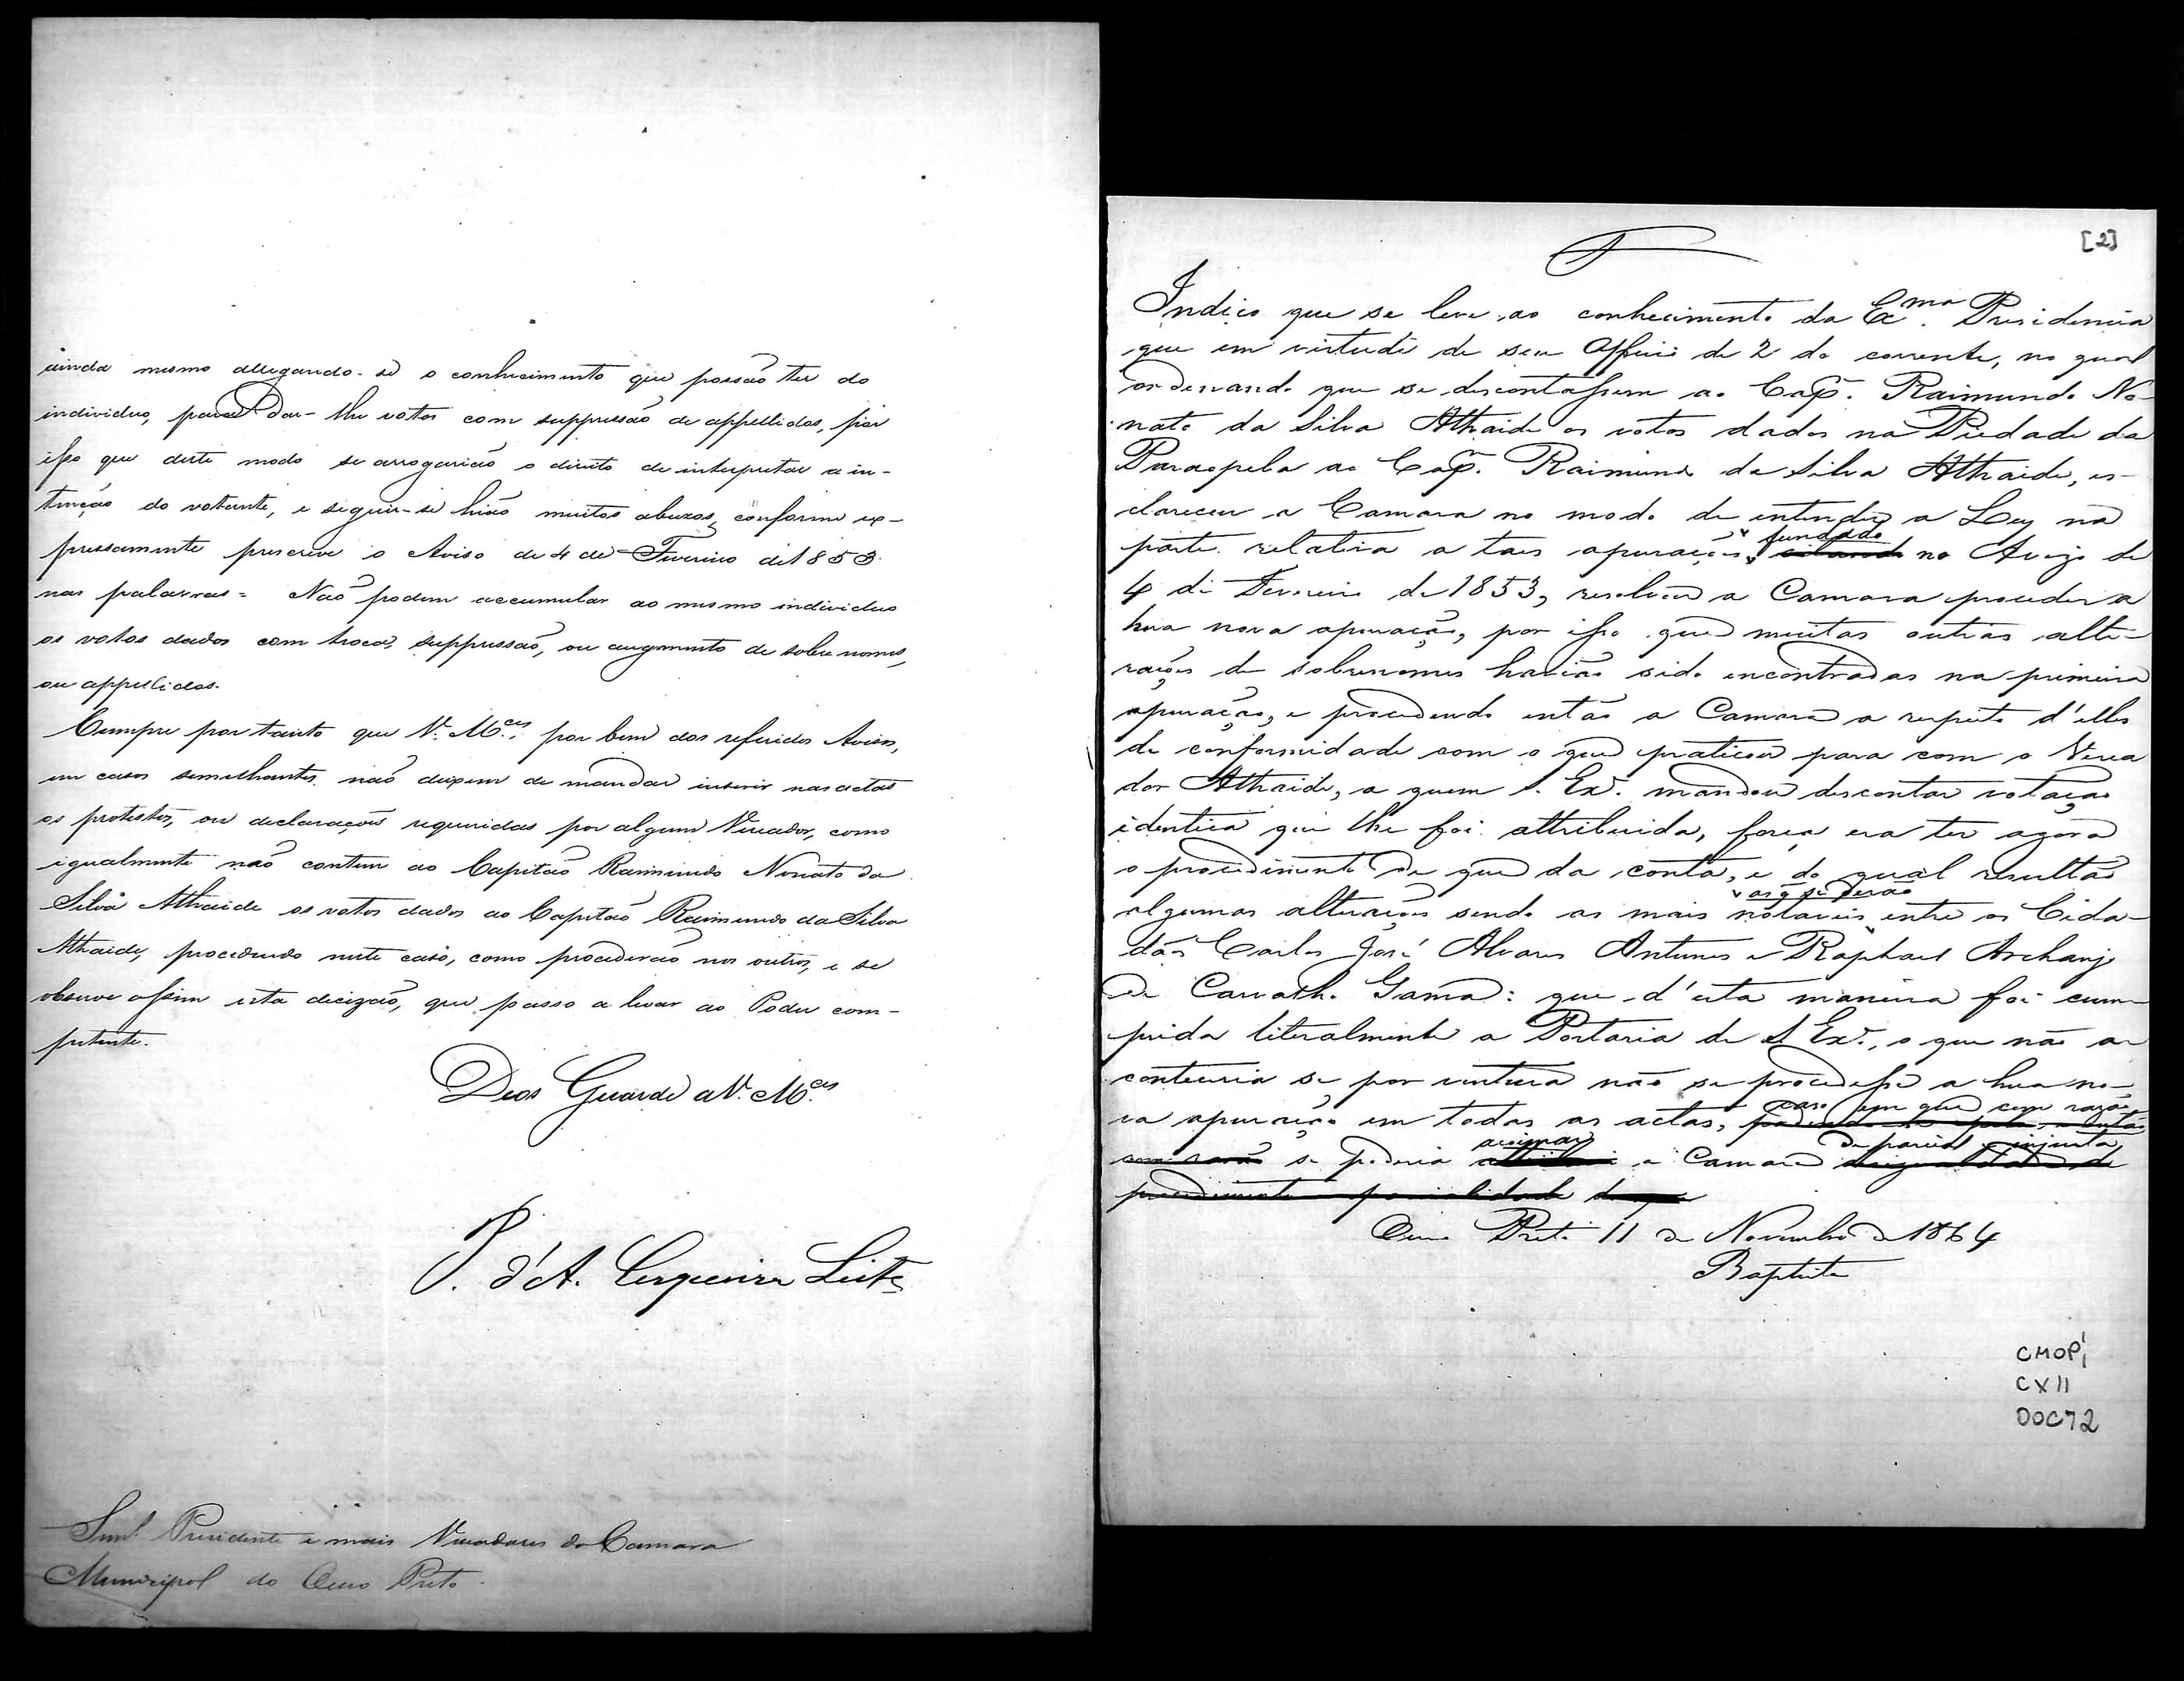 ainda mesmo allegando-se o conhecimento que possão ter do
individuo, para dar-lhe votos com suppressão de appellidos, por
isso que deste modo se arrogarião o direito de interpretar a in-
tenção do votante, e seguir-se hião muitos abuzos, conforme ex-
pressamente prescreve o Aviso de 4 de Fevereiro de 1853
nas palavras = Não podem accumular ao mesmo individuo
os votos dados com troca, suppressão, ou augmento de sobre nomes,
ou appellidos.
Cumpre por tanto que V. M.ces, por bem dos referidos Avisos,
em casos semelhantes não deixem de mandar inserir nas actas
os protestos, ou declarações requeridas por algum Vereador, como
igualmente não contem ao Capitão Raimundo Nonato da
Silva Athaide os votos dados ao Capitão Raimundo da Silva
Athaide, procedendo neste caso, como procederão nos outros, e se
observe assim esta decizão, que passo a levar ao Poder com-
petente.
Deos Guarde a V. M.ces
P. d'A. Cerqueira Leite
Snr.s Presidente e mais Vereadores da Camara
Municipal do Ouro Preto.
[2]
Indico que se leve ao conhecimento da Ex.ma Presidencia
que em virtude de seu Officio de 2 do corrente, no qual
ordenando que se descontassem ao Cap.m Raimundo No-
nato da Silva Athaide os votos dados na Piedade da
Paraopeba ao Cap.m Raimundo da Silva Athaide, es-
clareceu a Camara no modo de entender a Ley na
fundado
parte relativa a taes apurações, citando no Avizo de
4 de Fevereiro de 1853, resolveu a Camara proceder a
hua nova apuração, por isso que muitas outras alte-
rações de sobrenomes havião sido encontradas na primeira
apuração, e procedendo então a Camara a respeito d'elles
de conformidade com o que praticou para com o Verea
dor Athaide, a quem S. Ex.a mandou descontar votação
identica que lhe foi attribuida, força era ter agora
o procedimento de que da conta, e do qual resultão
as q se derão
algumas alterações sendo as mais notaveis entre os Cida-
dãos Carlos José Alvares Antunes e Raphael Archanjo
de Carvalho Gama: que d'esta maneira foi cum-
prida literalmente a Portaria de S Ex.a, o que não a-
conteceria se por ventura não se procedesse a hua no-
caso em que com razão
va apuração em todas as actas,
acoimar de parcial e injusta
com razão se poderia a Camara
procedimento parcialidade
Ouro Preto 11 de Novembro de 1864
Baptista
CMOP
CX11
DOC72